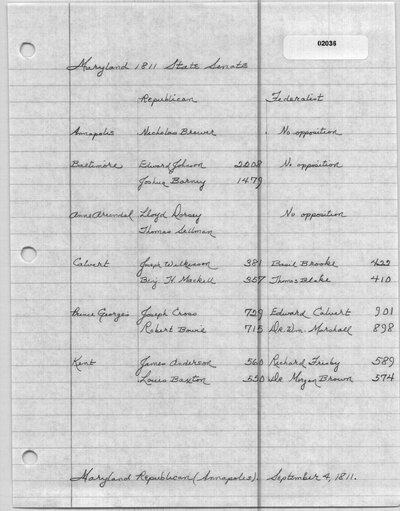 02036
Maryland 1811 State Senate
Republican Federalist
Annapolis Nicholas Brewer No opposition
Baltimore Edward Johnson 2008 No opposition
Joshua Barney 1479
Anne Arundel Lloyd Dorsey No opposition
Thomas Sellman
Calvert Joseph Wilkinson 381 Basil Brooke 422
Benj H. Mackall 357 Thomas Blake 410
Prince Georges Joseph Cross 729 Edward Calvert 901
Robert Bowie 715 Dr. Wm. Marshall 898
Kent James Anderson 560 Richard Frisby 589
Louis Baxton 550 Dr Morgan Brown 574
Maryland Republican (Annapolis). September 4, 1811.